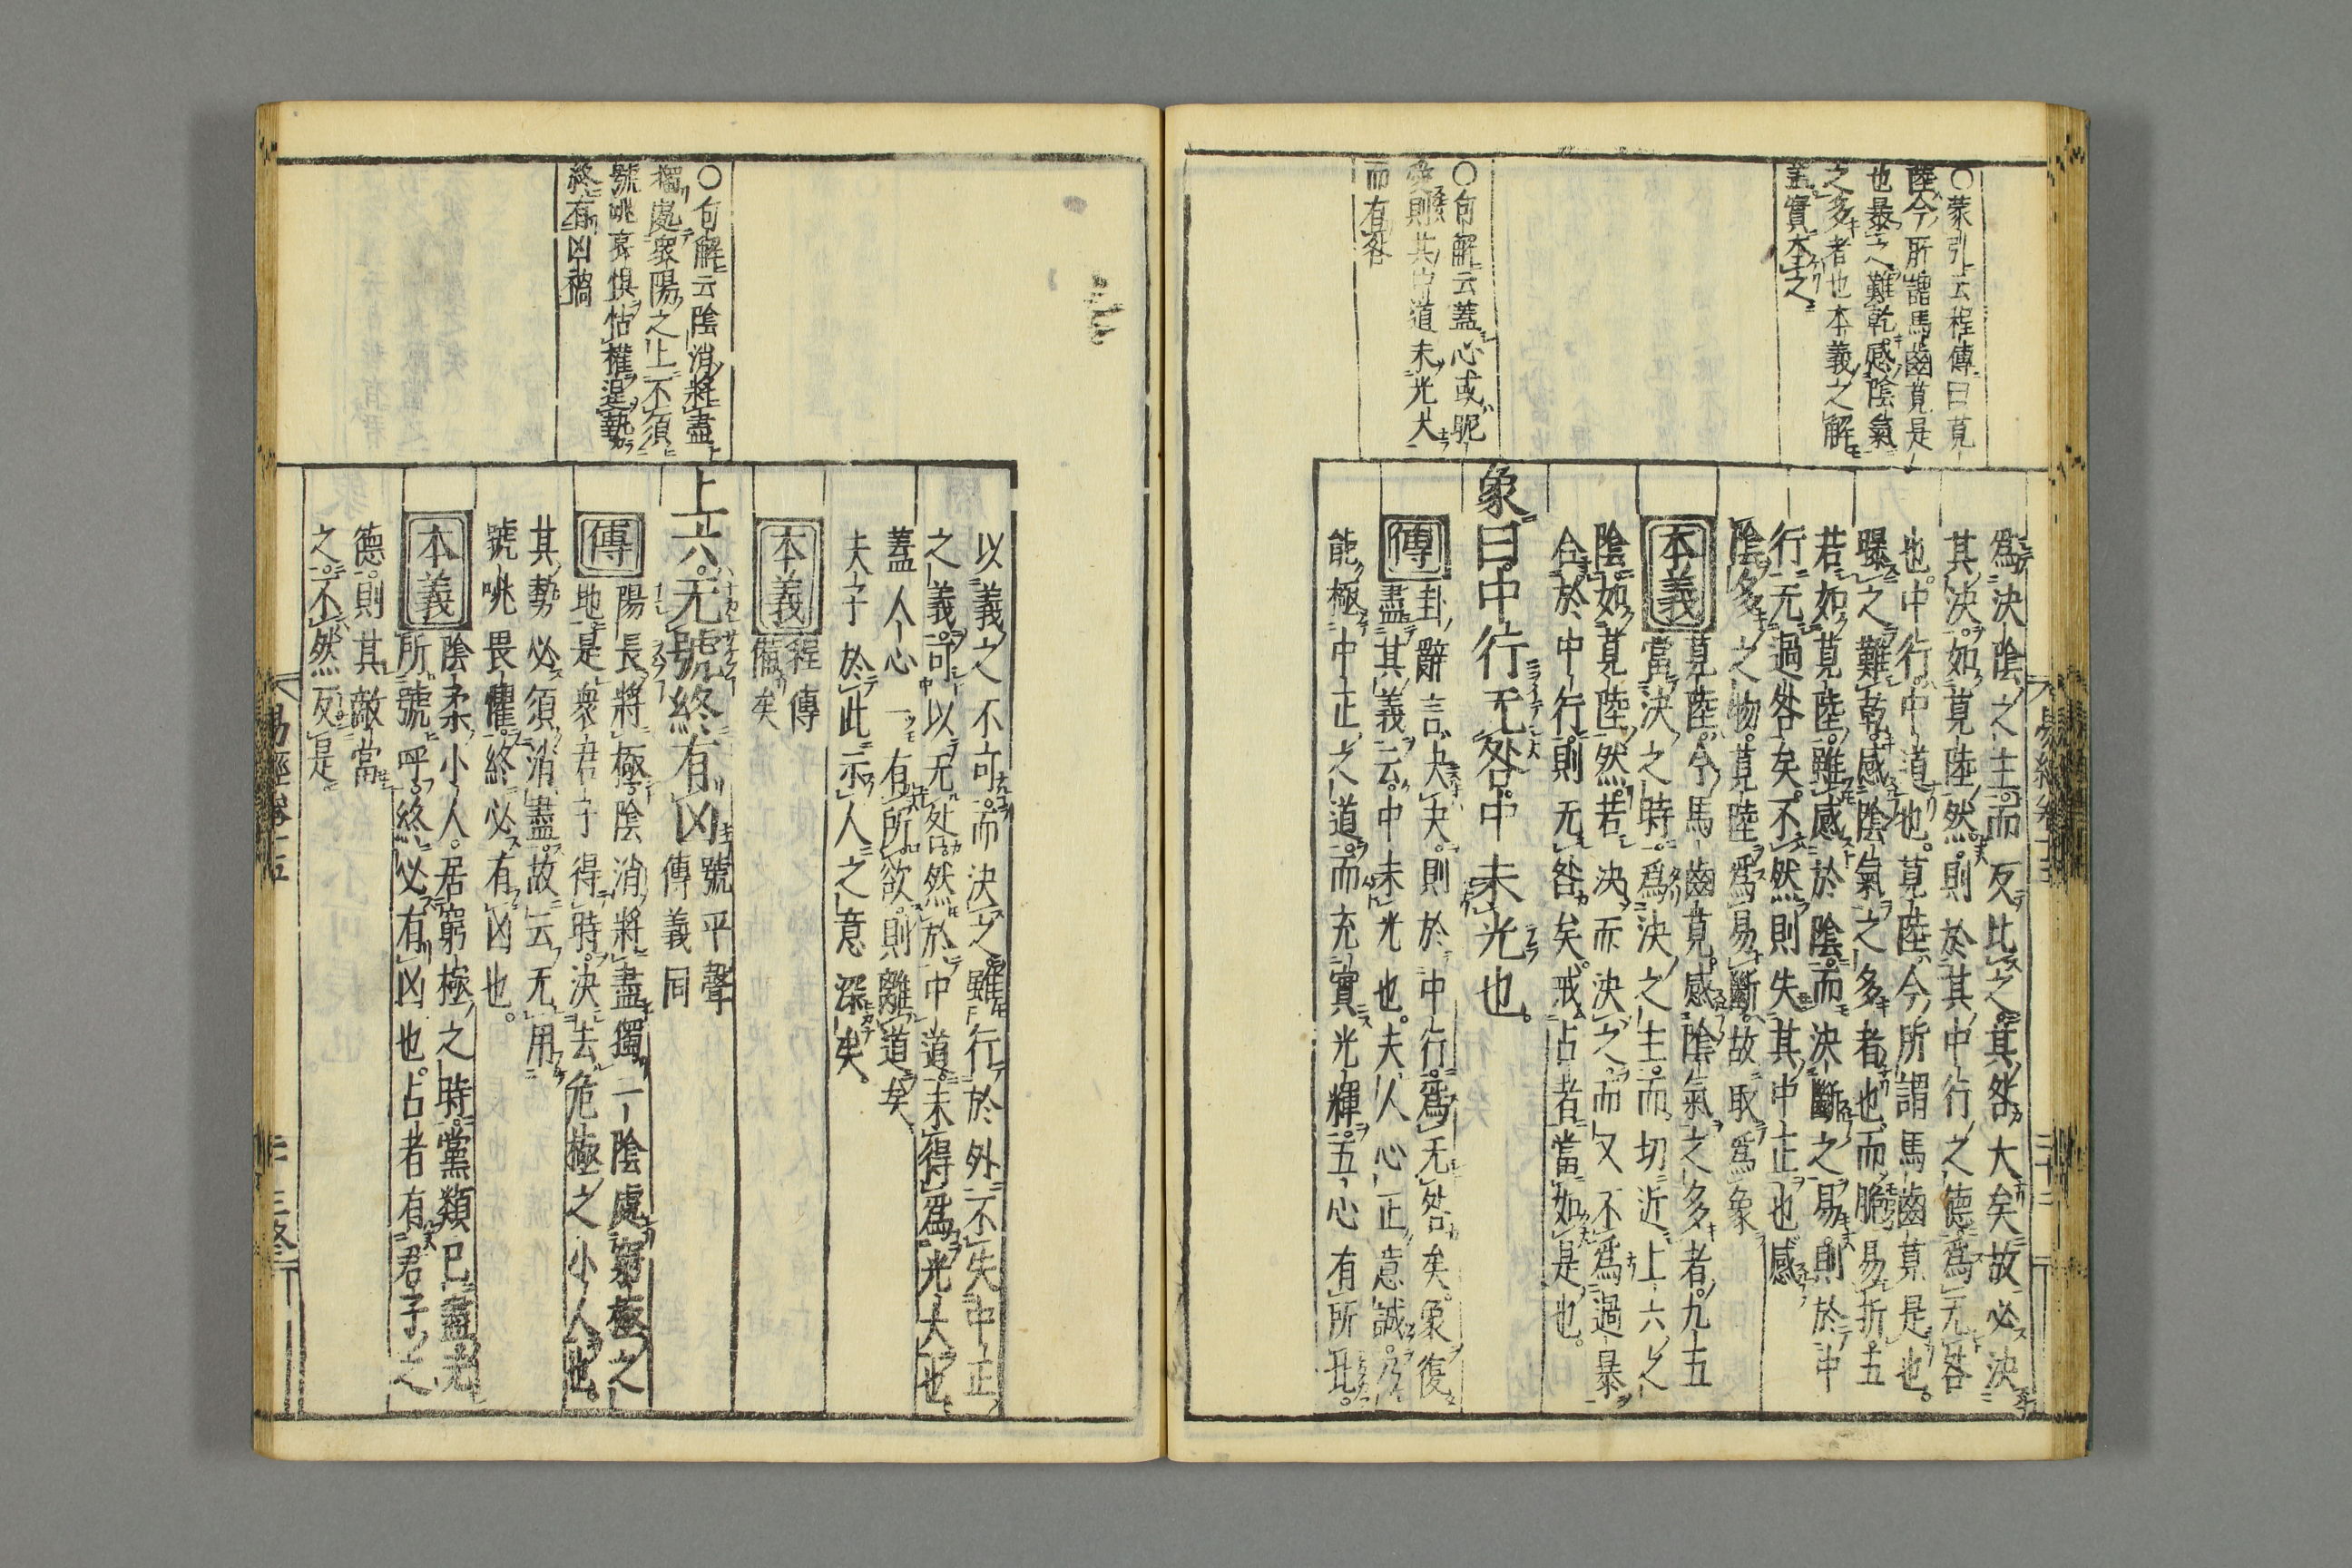 ○蒙引云程傳曰莧
陸今所謂馬齒莧是
也暴之難乾感陰氣
之多者也本義之解
蓋實本之
爲決陰之主而反比之其咎大矣故必決
其決如莧陸然則於其中行之德爲无咎
也中行中道也莧陸今所謂馬齒莧是也
曝之難乾感陰氣之多者也而脆易折五
若如莧陸雖感於陰而決斷之易則於中
行无過咎矣不然則失其中正也感
陰多之物莧陸爲易斷故取爲象
本義 莧陸今馬齒莧感陰氣之多者九五
當決之時爲決之主而切近上六之
陰如莧陸然若決而決之而又不爲過暴
合於中行則无咎矣戒占者當如是也
○句解云蓋心或昵
愛則其中道未光大
而有咎
象曰中行无咎中未光也
傳 卦辭言夬夬則於中行爲无咎矣象復
盡其義云中未光也夫人心正意誠乃
能極中正之道而充實光輝五心有所比
以義之不可而決之雖行於外不失中正
之義可以无咎然於中道未得爲光大也
蓋人心一有所欲則離道矣
夫子於此示人之意深矣
本義 程傳
備矣
○句解云陰消將盡
獨處衆陽之上不須
號咷哀惧怙權逞執
終有凶禍
上六无號終有凶 號平聲
傳義同
傳 陽長將極陰消將盡獨一陰處窮極之
地是衆君子得時決去危極之小人也
其勢必須消盡故云无用
號咷畏懼終必有凶也
本義 陰柔小人居窮極之時黨類已盡无
所號呼終必有凶也占者有君子之
德則其敵當
之不然反是
易經卷十五